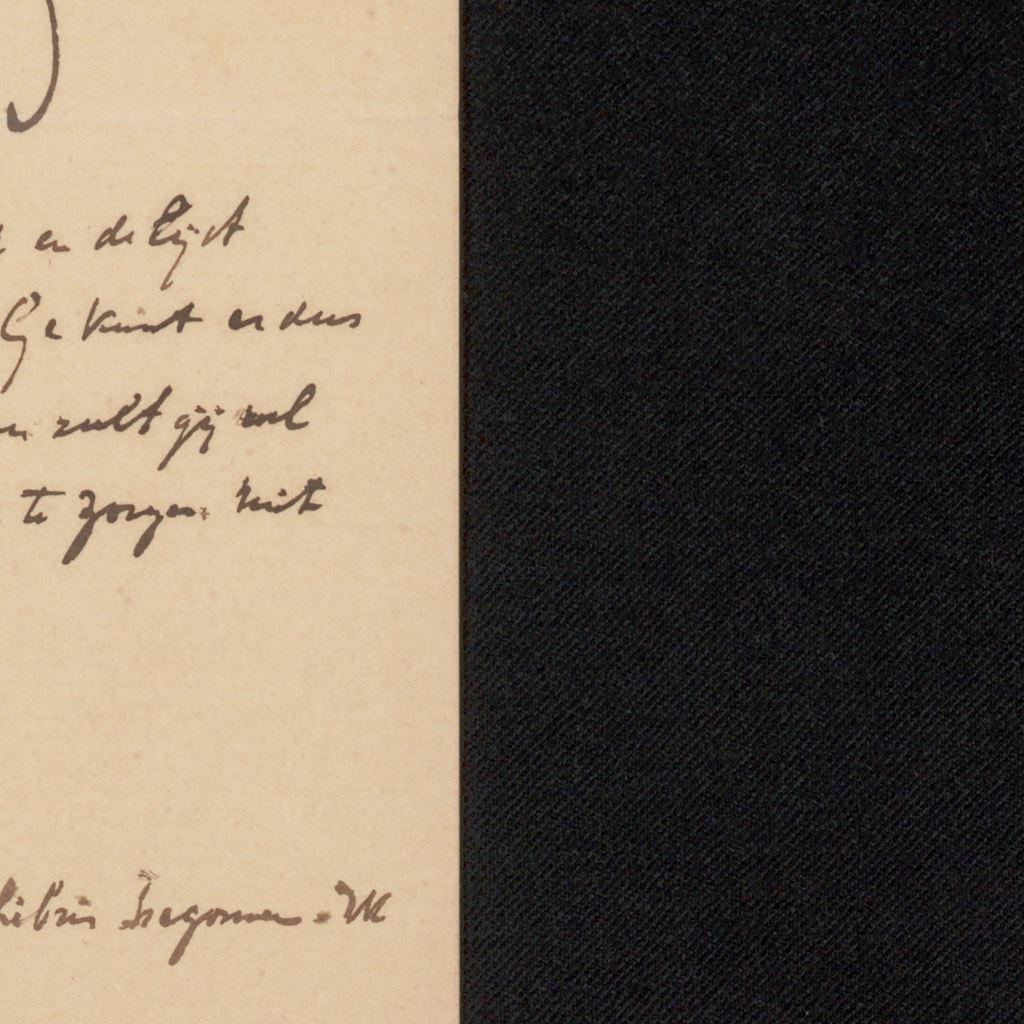 en de lijst
Ge kunt er dus
zult gij wel
te zorgen. Mit
begonnen. Ik